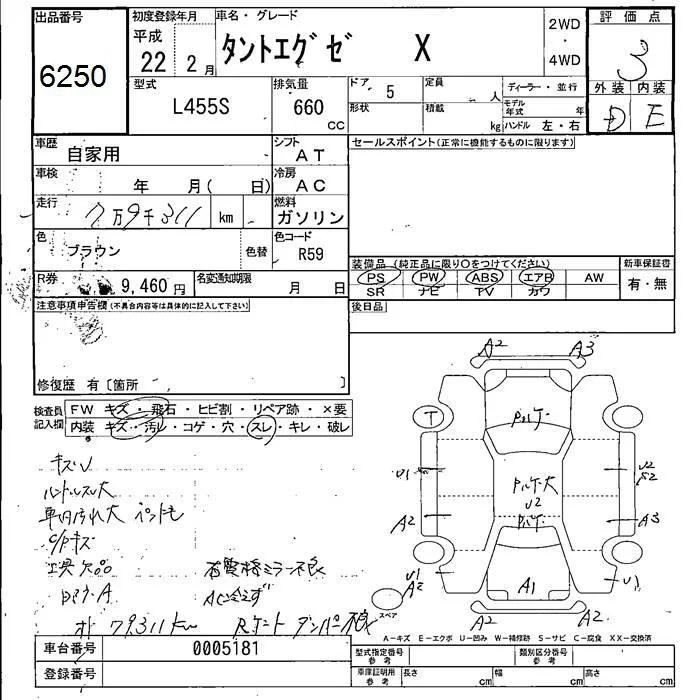 出品番号 初度登録年月 車名・グレード 評価点
6250 平成 22年 2月 タントエグゼ X 2WD・4WD 3
型式 L455S 排気量 660 CC ドア 5 定員 人 ディーラー・並行 外装 内装
形状 積載 kg モデル年式 年 ハンドル 左・右 D E
車歴 自家用 シフト AT セールスポイント(正常に機能するものに限ります)
車検 年 月( 日) 冷房 AC
走行 7万9千311 km 燃料 ガソリン
色 ブラウン 色替 色コード R59
装備品(純正品に限り○をつけてください) 新車保証書
R券 9,460 円 名変通知期限 月 日 PS PW ABS エアB AW 有・無
SR ナビ TV カワ
注意事項申告欄(不具合内容等は具体的に記入して下さい) 後日品
修復歴 有〔箇所 〕
検査員記入欄 FW キズ・飛石・ヒビ割・リペア跡・×要
内装 キズ・汚レ・コゲ・穴・スレ・キレ・破レ
A2 A3
T
U1 U2 S2
U2
A2 A3
U1 A2 A1 U1
スペア A2 A2
キズU
ハンドルスレ大
車内汚れ大 ペットも
C/Pキズ
工具欠品 右電格ミラー不良
AC冷えず
オド 79311km Rゲートダンパー不良
A-キズ E-エクボ U-凹み W-補修跡 S-サビ C-腐食 XX-交換済
車台番号 0005181 型式指定番号 参考 類別区分番号 参考
登録番号 車庫証明用 参考 長さ cm 幅 cm 高さ cm